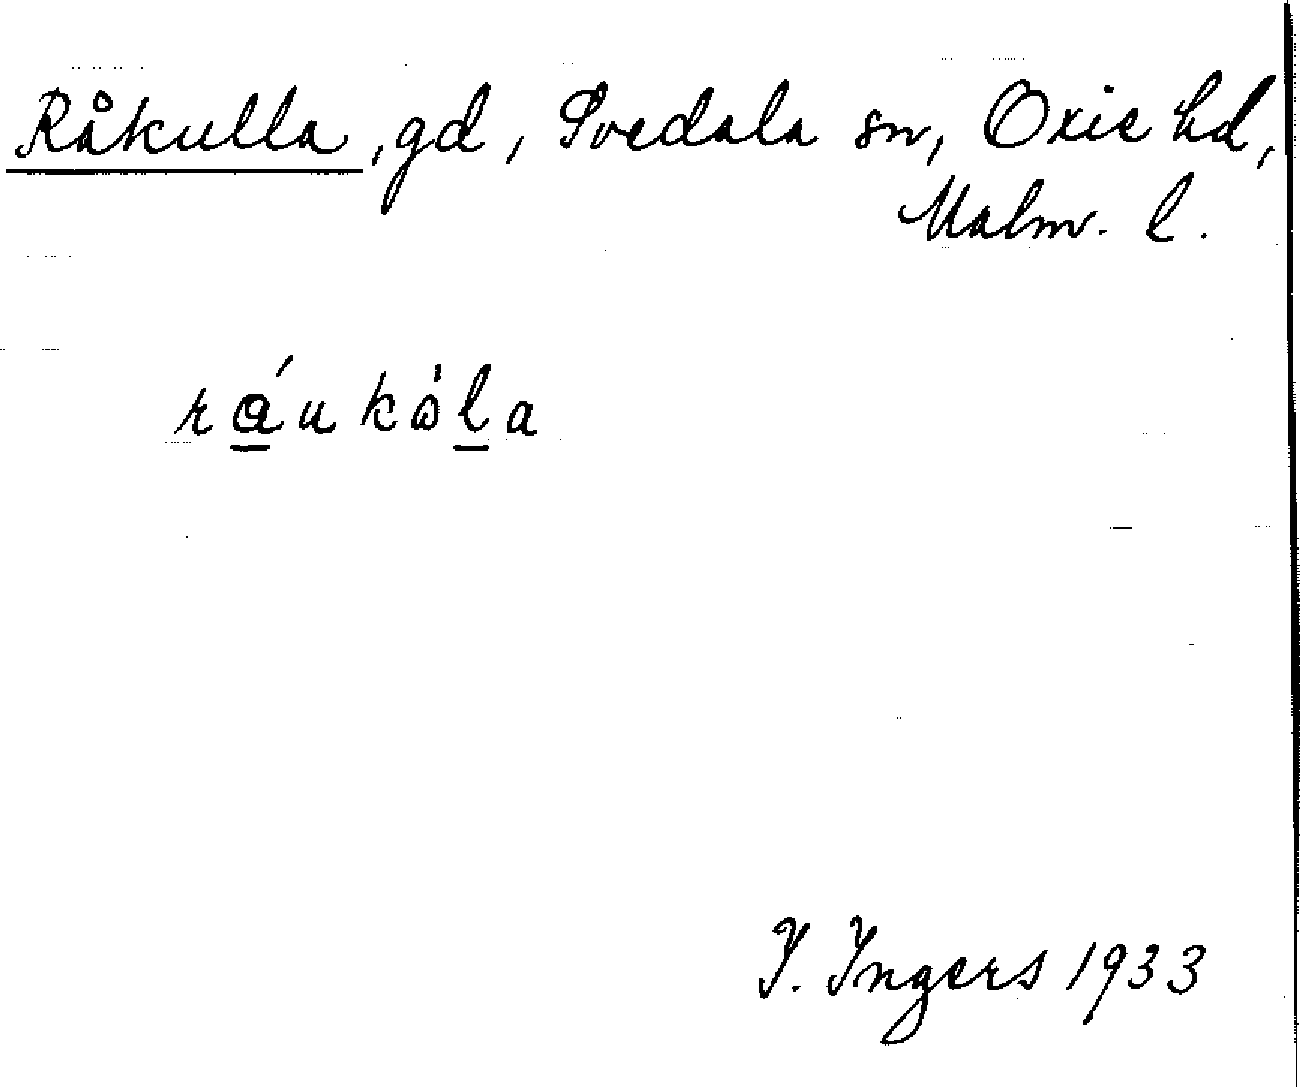 Råkulla, gd, Svedala sn, Oxie hd,
Malm. l.
ráukòla
I. Ingers 1933